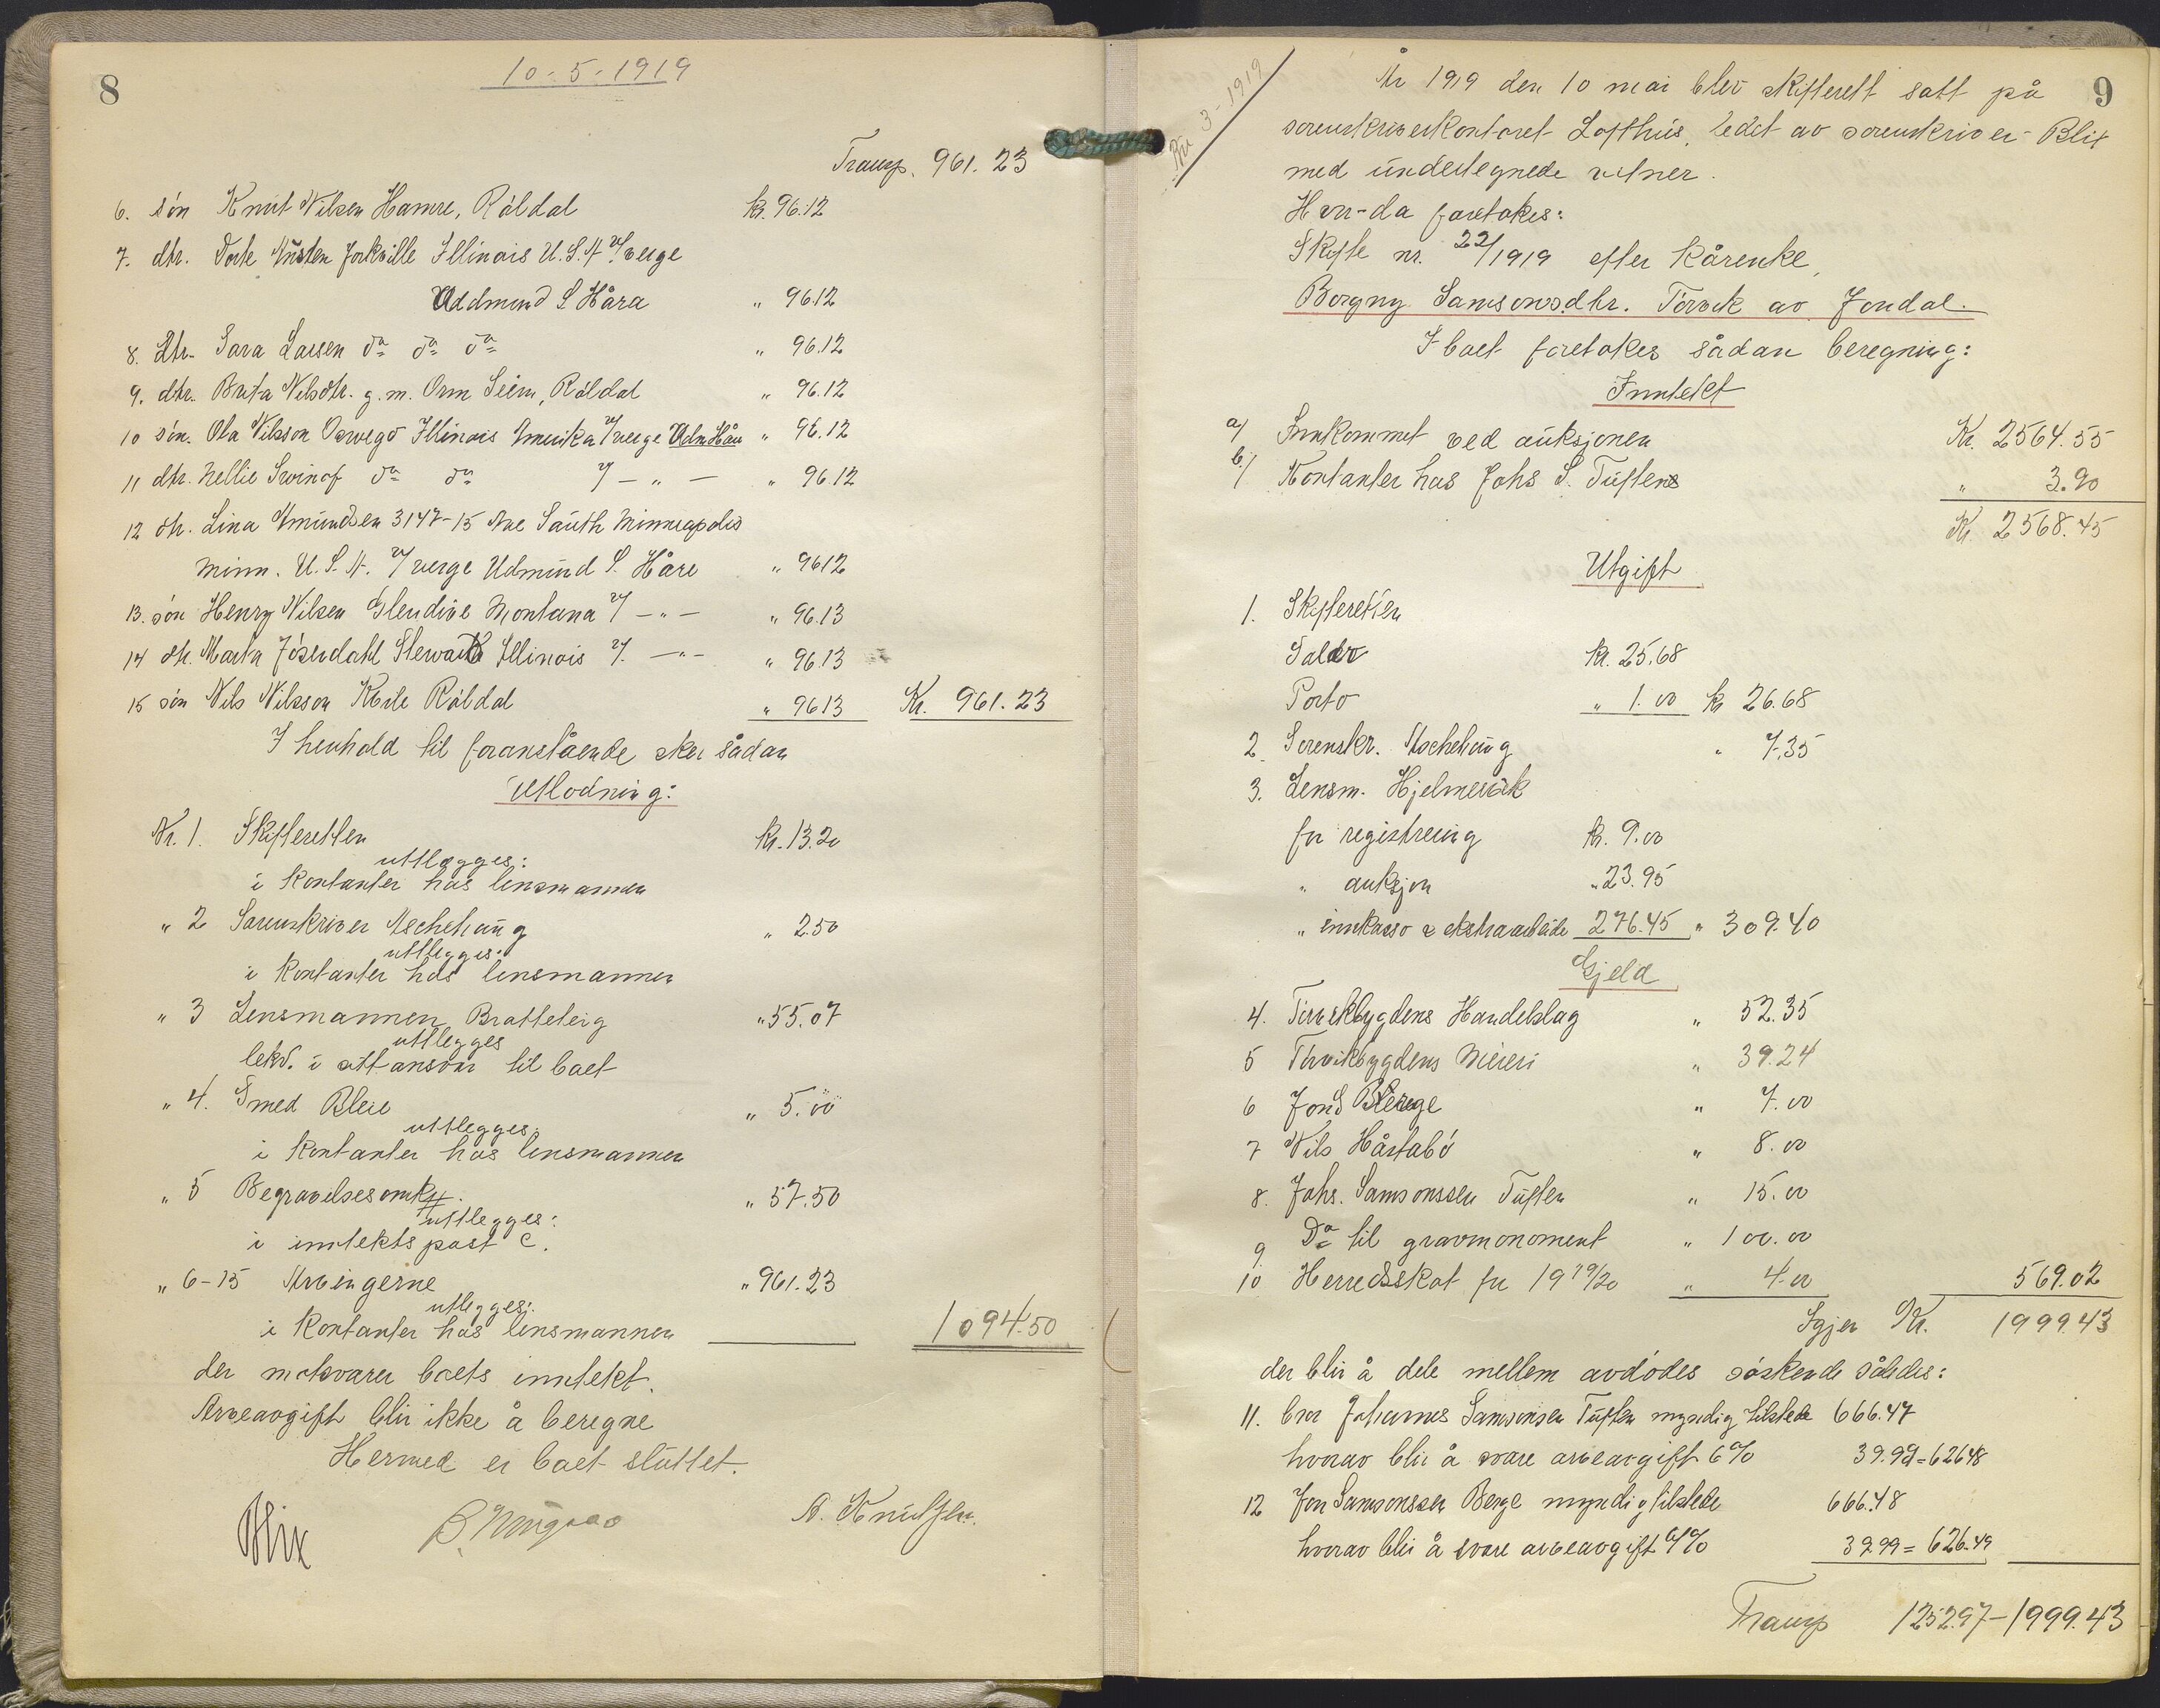 8
10-5-1919
Transp. 961.23
6. søn Knut Nilsen Hamre, Røldal kr. 96.12
7. dtr. Dorte Austen Jorkville Illinois U.S.A v/verge
Uddmund S Håra " 96.12
8. dtr. Sara Larsen do do do " 96.12
9. dtr. Brita Nilsdtr. g.m. Orm Seim, Røldal " 96.12
10 søn. Ola Nilsson Oswego Illinois Amerika v/verge Udm Håra " 96.12
11 dtr. Nellie do do v/ — " — " 96.12
12 dtr. Lina Amundsen 3147-15 Ave South Minneapolis
Minn. U.S.A. v/ verge Udmund S. Håra " 96 12
13. søn Henry Nilsen Glendive Montana v/ — " — " 96.13
14 dtr. Marta Jøsendahl Steward Illinois v/. — " — " 96.13
15 søn Nils Nilsson Røldal " 96 13 Kr. 961.23
I henhold til foranstående sker sådan
Utlodning:
Nr. 1. Skifteretten kr. 13.20
utlegges:
i kontanter hos lensmannen
" 2 Sorenskriver Aschehoug " 2.50
utlegges:
i kontanter hos lensmannen
" 3 Lensmannen Bratteteig " 55.07
utlegges
lekv. i sitt ansvar til boet
" 4. Smed Bleie " 5.00
utlegges:
i kontanter hos lensmannen
" 5 Begravelsesomk. " 57.50
utlegges:
i inntekts post c.
" 6-15 Arvingerne " 961.23
utlegges:
i kontanter hos lensmannen 1094.50
der motsvarer boets inntekt.
Arveavgift blir ikke å beregne
Hermed er boet sluttet.
Blix A. Knutsen.
9
Nr 3-1919
År 1919 den 10 mai blev skifterett satt på
sorenskriverkontoret Lofthus, ledet av sorenskriver Blix
med undertegnede vitner.
Hvor-da foretokes:
Skifte nr. 22/1919 efter kårenke,
Borgny Samsonsdtr. Torvik av Jondal.
I boet foretokes sådan beregning:
Inntekt
a/ Innkommet ved auksjonen Kr. 2564.55
b/ Kontanter hos Johs S. Tuften " 3.90
Kr. 2568.45
Utgift
1. Skifteretten
Kr. 25.68
Porto " 1.00 kr 26.68
2. Sorenskr. Aschehoug " 7.35
3. Lensm. Hjelmevik
for registrering kr. 9.00
" auksjon " 23.95
" innkasso & ekstraarbeide 276.45 " 309.40
Gjeld
4. Torvikbygdens Handelslag " 52.35
5 Torvikbygdens Meieri " 39.24
6 Jon S Berge " 7.00
7 Nils Håstabø " 8.00
8. Johs. Samsonssen Tuften " 15.00
9 Do til gravmonoment " 100.00
10 Herredsskat for 1919/20 " 4.00 569.02
Igjen Kr. 1999.43
der blir å dele mellem avdødes søskende således:
11. bror Johannes Samsonsen Tuften myndig tilstede 666.47
hvorav blir å svare arveavgift 6% 39.99 = 626 48
12 Jon Samsonssen Berge myndig tilstede 666.48
hvorav blir å svare arveavgift 6% 39 99 = 626.49
Transp 1252.97 - 1999.43